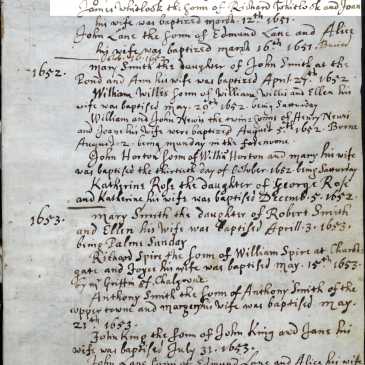 James Whitlock the sonn of Richard Whitlock and Joan
his wife was baptized march. 12th 1651.
John Lane the sonn of Edmund Lane and Alice
his wife was baptized march 16th 1651. Buried
1652.
mary Smith the daughter of John Smith at the
Pond and Ann his wife was baptized April. 27th. 1652
William Willis sonn of William Willis and Ellen his
wife was baptised may. 20th 1652. being Saturday
William and John Newn the twin sonns of Henry Newn
and Joane his wife were baptized August 5th. 1652. Borne
August. 2. being munday in the forenoone.
John Horton sonn of Will: Horton and mary his wife
was baptised the thirtieth day of October 1652. being Saturday
Katherine Rose the daughter of George Rose
and Katherine his wife was baptised Decemb. 5. 1652.
1653.
Mary Smith the daughter of Robert Smith
and Ellen his wife was baptised Aprill. 3. 1653.
being Palme Sunday
Richard Spire the sonn of William Spire at
gate and Joyce his wife was baptised may. 15th 1653.
by mr Griffin of
Anthony Smith the sonn of Anthony Smith of the
upper towne and margery his wife was baptised may.
21th 1653.
John King the sonn of John King and Jane his
wife was baptised July. 31. 1653.
John Lane sonn of Edmund Lane and Alice his wife